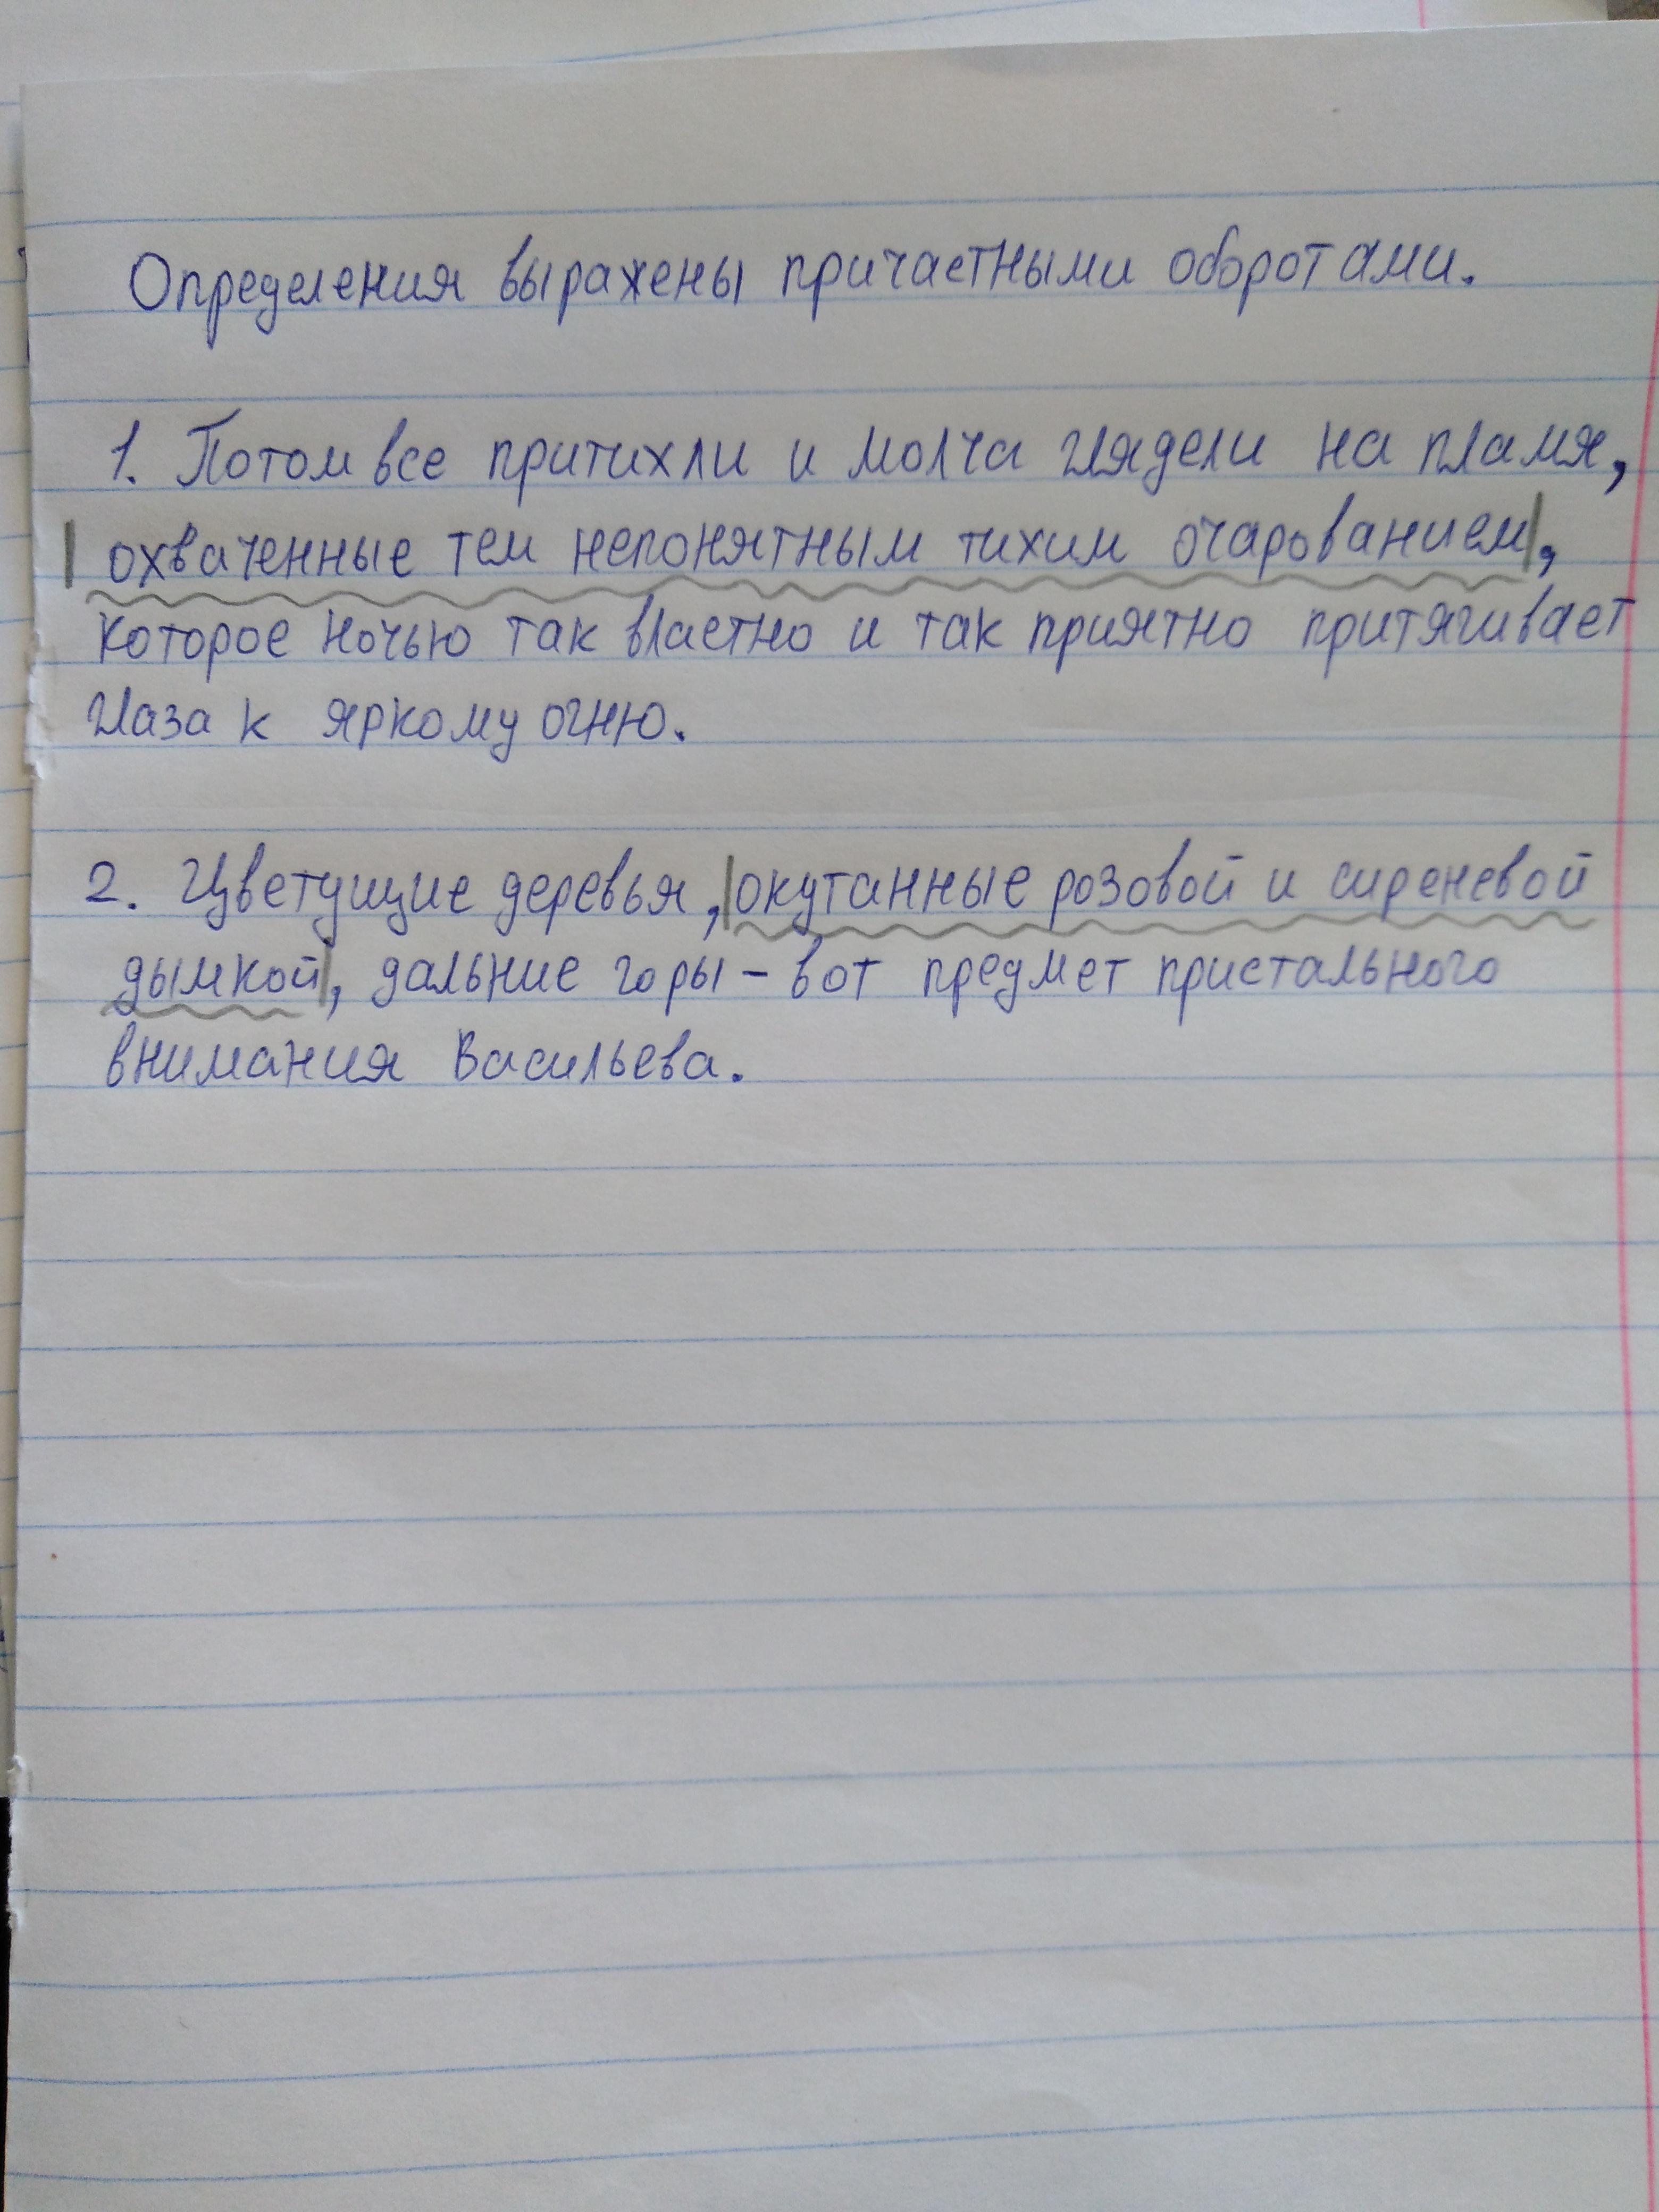 Определения выражены причастными оборотами.
1. Потом все притихли и молча глядели на пламя,
охваченные тем непонятным тихим очарованием,
которое ночью так властно и так приятно притягивает
глаза к яркому огню.
2. Цветущие деревья, окутанные розовой и сиреневой
дымкой, дальние горы – вот предмет пристального
внимания Васильева.